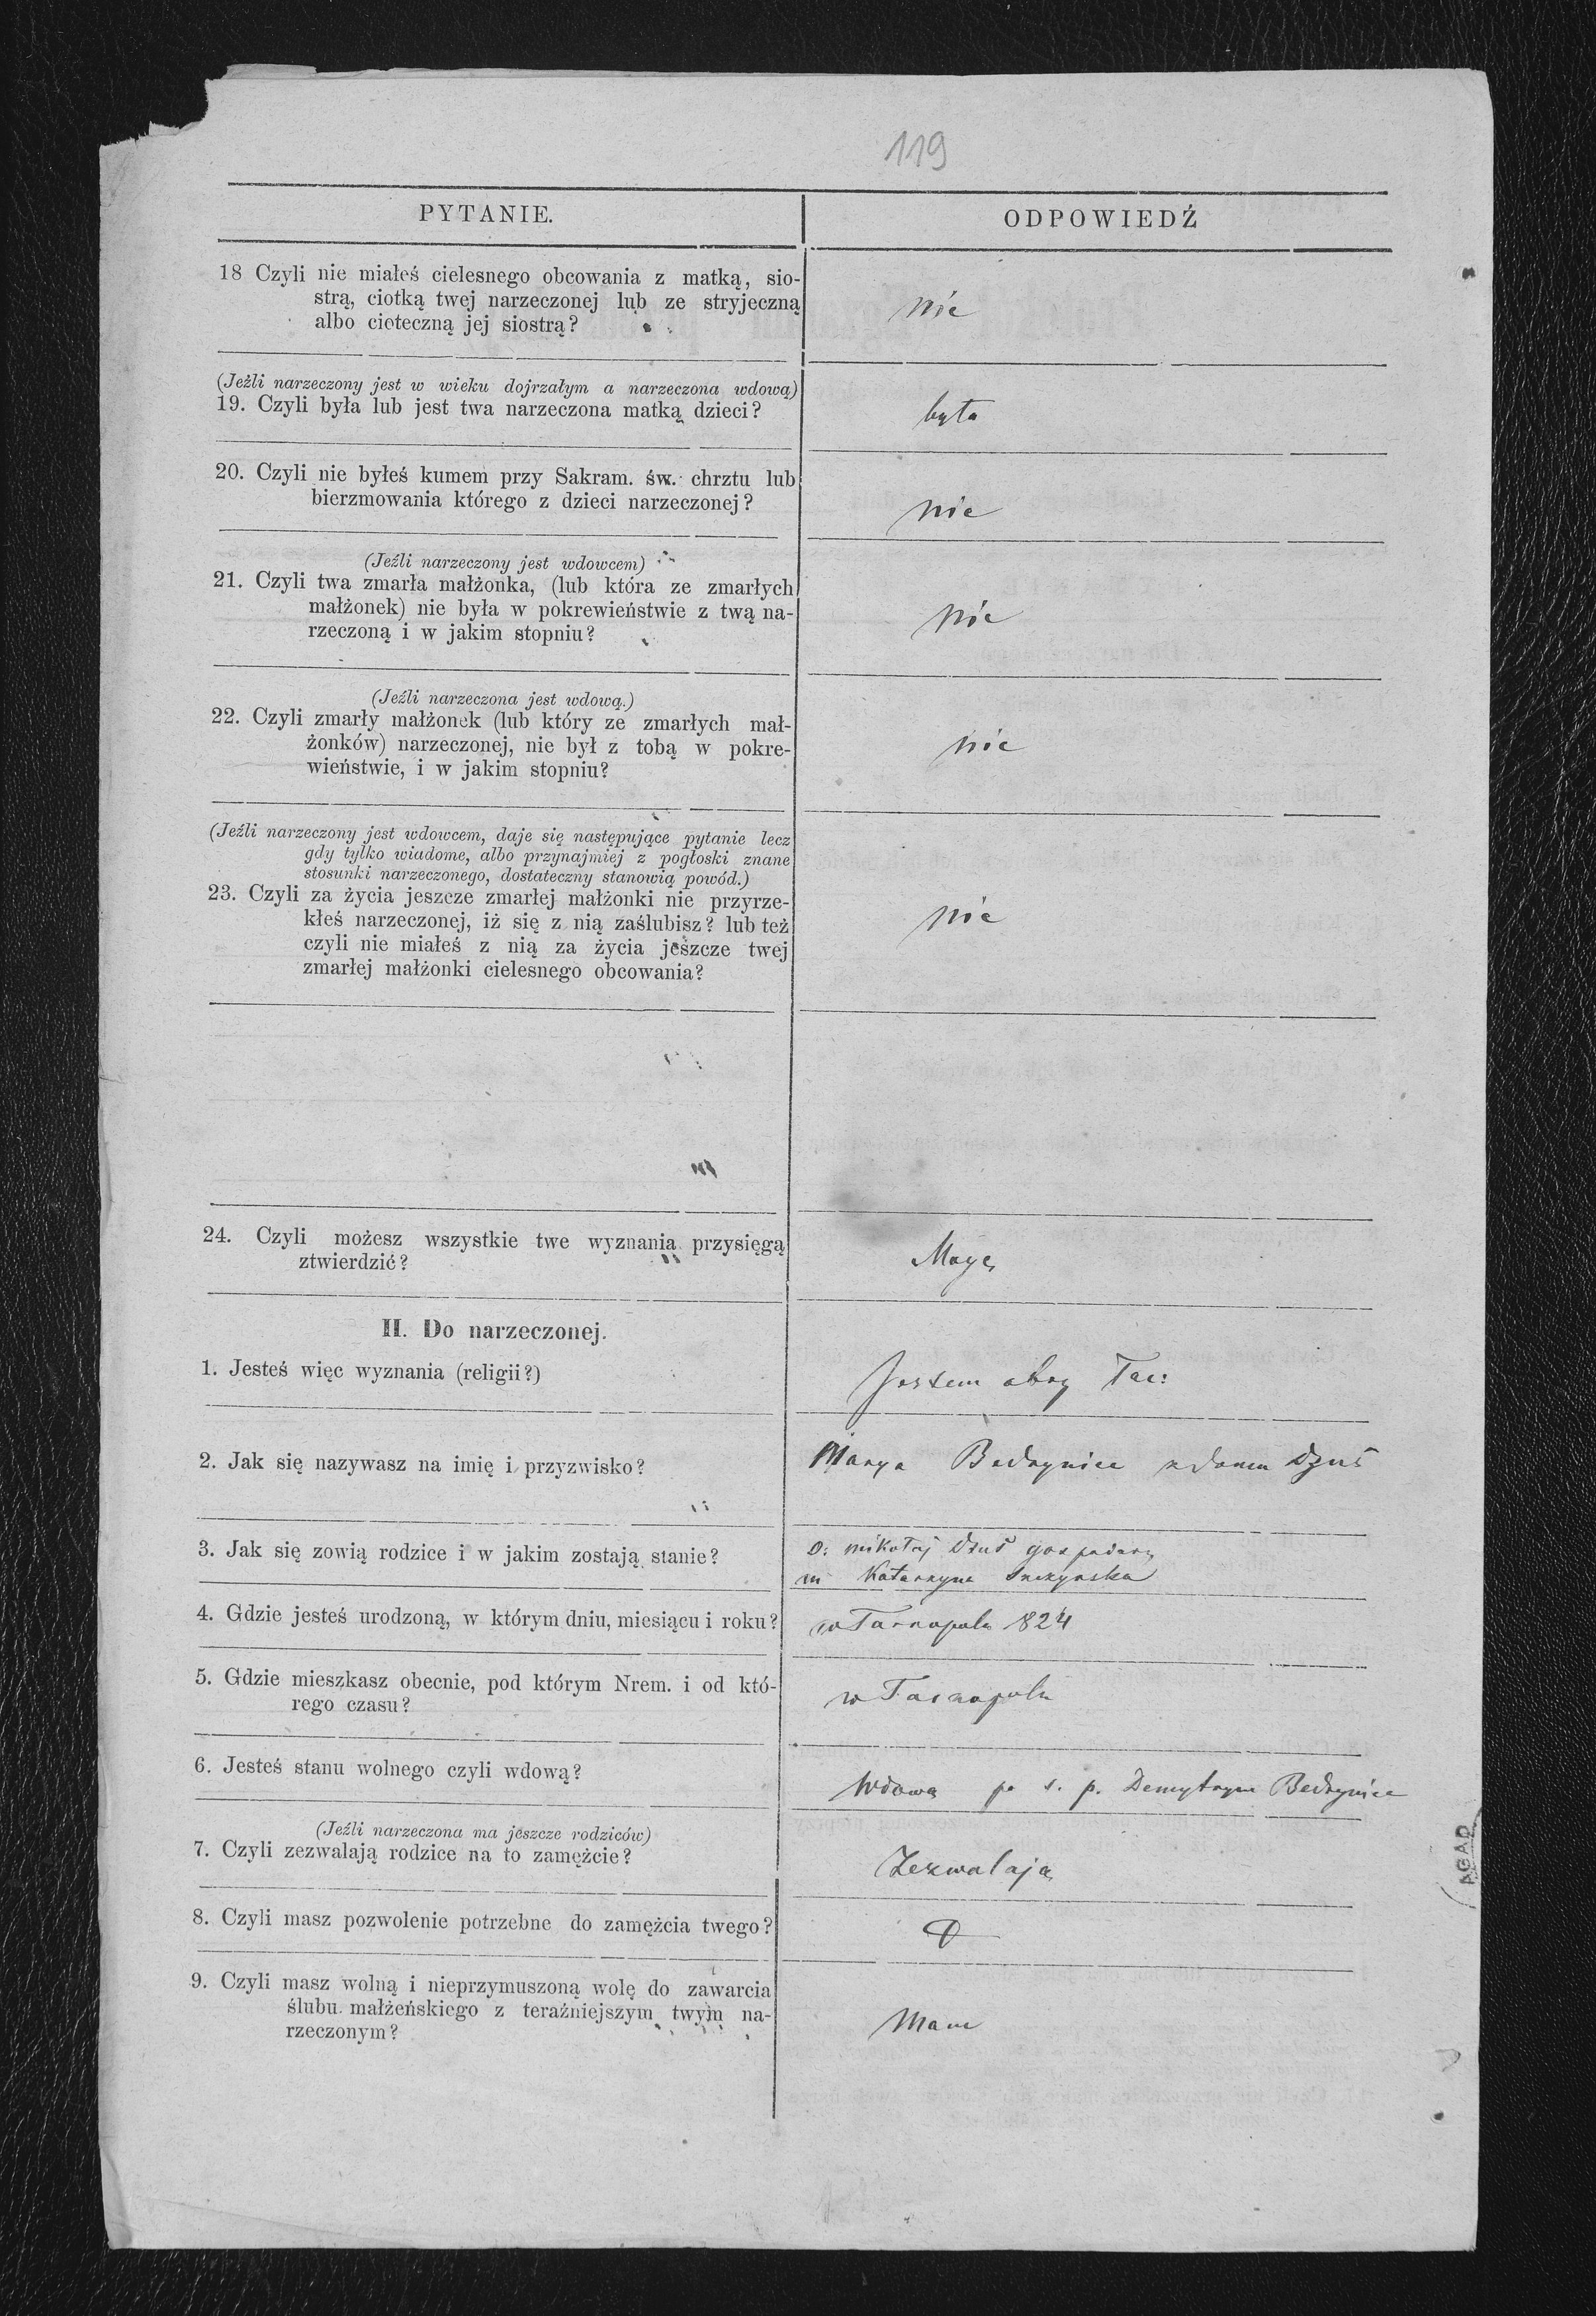 119
PYTANIE.
ODPOWIEDŹ
18 Czyli nie miałeś cielesnego obcowania z matką, sio-
strą, ciotką twej narzeczonej lub ze stryjeczną
albo cioteczną jej siostrą?
nie
(Jeźli narzeczony jest w wieku dojrzałym a narzeczona wdową)
19. Czyli była lub jest twa narzeczona matką dzieci?
była
20. Czyli nie byłeś kumem przy Sakram. św. chrztu lub
bierzmowania którego z dzieci narzeczonej?
nie
(Jeźli narzeczony jest wdowcem)
21. Czyli twa zmarła małżonka, (lub która ze zmarłych
małżonek) nie była w pokrewieństwie z twą na-
rzeczoną i w jakim stopniu?
nie
(Jeźli narzeczona jest wdową.)
22. Czyli zmarły małżonek (lub który ze zmarłych mał-
żonków) narzeczonej, nie był z tobą w pokre-
wieństwie, i w jakim stopniu?
nie
(Jeźli narzeczony jest wdowcem, daje się następujące pytanie lecz
gdy tylko wiadome, albo przynajmiej z pogłoski znane
stosunki narzeczonego, dostateczny stanowią powód.)
23. Czyli za życia jeszcze zmarłej małżonki nie przyrze-
kłeś narzeczonej, iż się z nią zaślubisz? lub też
czyli nie miałeś z nią za życia jeszcze twej
zmarłej małżonki cielesnego obcowania?
nie
24. Czyli możesz wszystkie twe wyznania przysięgą
ztwierdzić?
Mogę
II. Do narzeczonej.
1. Jesteś więc wyznania (religii?)
Jestem obrz łac:
2. Jak się nazywasz na imię i przyzwisko?
Marya Bedrynice z domu Dzuś
3. Jak się zowią rodzice i w jakim zostają stanie?
O: Mikołaj Dzuś gospodarz
m Katarzyna
4. Gdzie jesteś urodzoną, w którym dniu, miesiącu i roku?
w Tarnopolu 824
5. Gdzie mieszkasz obecnie, pod którym Nrem. i od któ-
rego czasu?
w Tarnopolu
6. Jesteś stanu wolnego czyli wdową?
Wdową po s. p. Demytrym Bedrynice
(Jeźli narzeczona ma jeszcze rodziców)
7. Czyli zezwalają rodzice na to zamężcie?
Zezwalają
8. Czyli masz pozwolenie potrzebne do zamężcia twego?
9. Czyli masz wolną i nieprzymuszoną wolę do zawarcia
ślubu małżeńskiego z teraźniejszym twym na-
rzeczonym?
Mam
AGAD